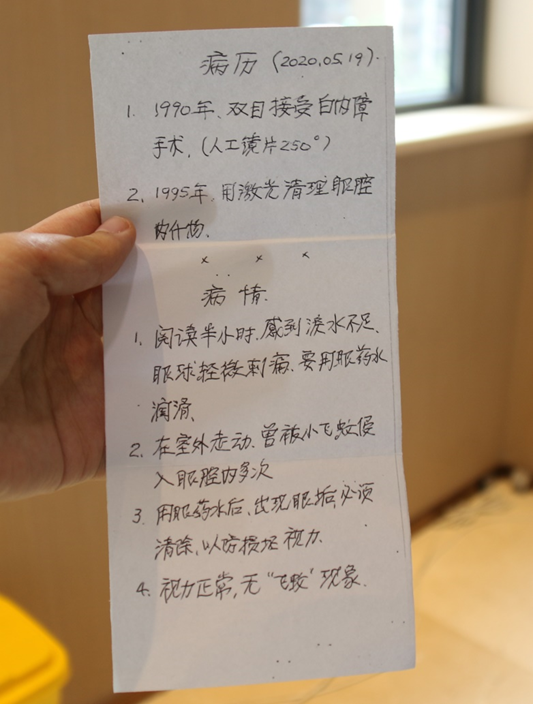 病历（2020.05.19）.
1. 1990年、双目接受白内障
手术.（人工镜片250°）
2. 1995年,用激光清理眼腔
的什物.
× × ×
病情.
1. 阅读半小时.感到泪水不足、
眼球轻微刺痛.要用眼药水
润滑.
2. 在室外走动.曾被小飞蚊侵
入眼腔内多次
3. 用眼药水后、出现眼垢,必须
清除,以防损坏视力.
4. 视力正常,无“飞蚊”现象.